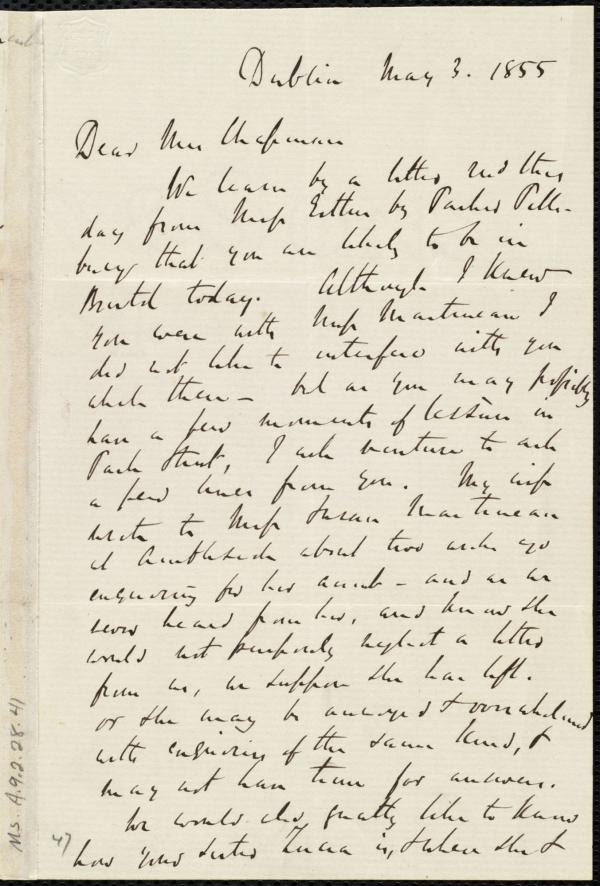 Dublin May 3. 1855
Dear Mrs Chapman
We learn by a letter recd this
day from Miss Estlin by Parker Pills-
bury that you are likely to be in
Bristol today. Although I knew
you were with Miss Martineau I
did not like to interfere with you
while there – but as you may possibly
have a few moments of leisure in
Park Street, I will venture to ask
a few lines from you. My wife
wrote to Miss Susan Martineau
at Ambleside about two weeks ago
enquiring for her aunt – and as we
never heard from her, and know she
would not purposely neglect a letter
from us, we suppose she has left.
or she may be annoyed & overwhelmed
with enquiries of the same kind, &
may not have time for answers.
We would also greatly like to know
how your sister Lucia is, & where she &
47
Ms. A.9.2.28.41